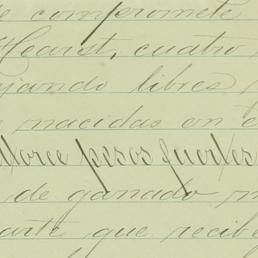 e compromete
Hearst, cuatro
jando libres
nacidas en
torce pesos fuertes
de ganado
arte que recibe